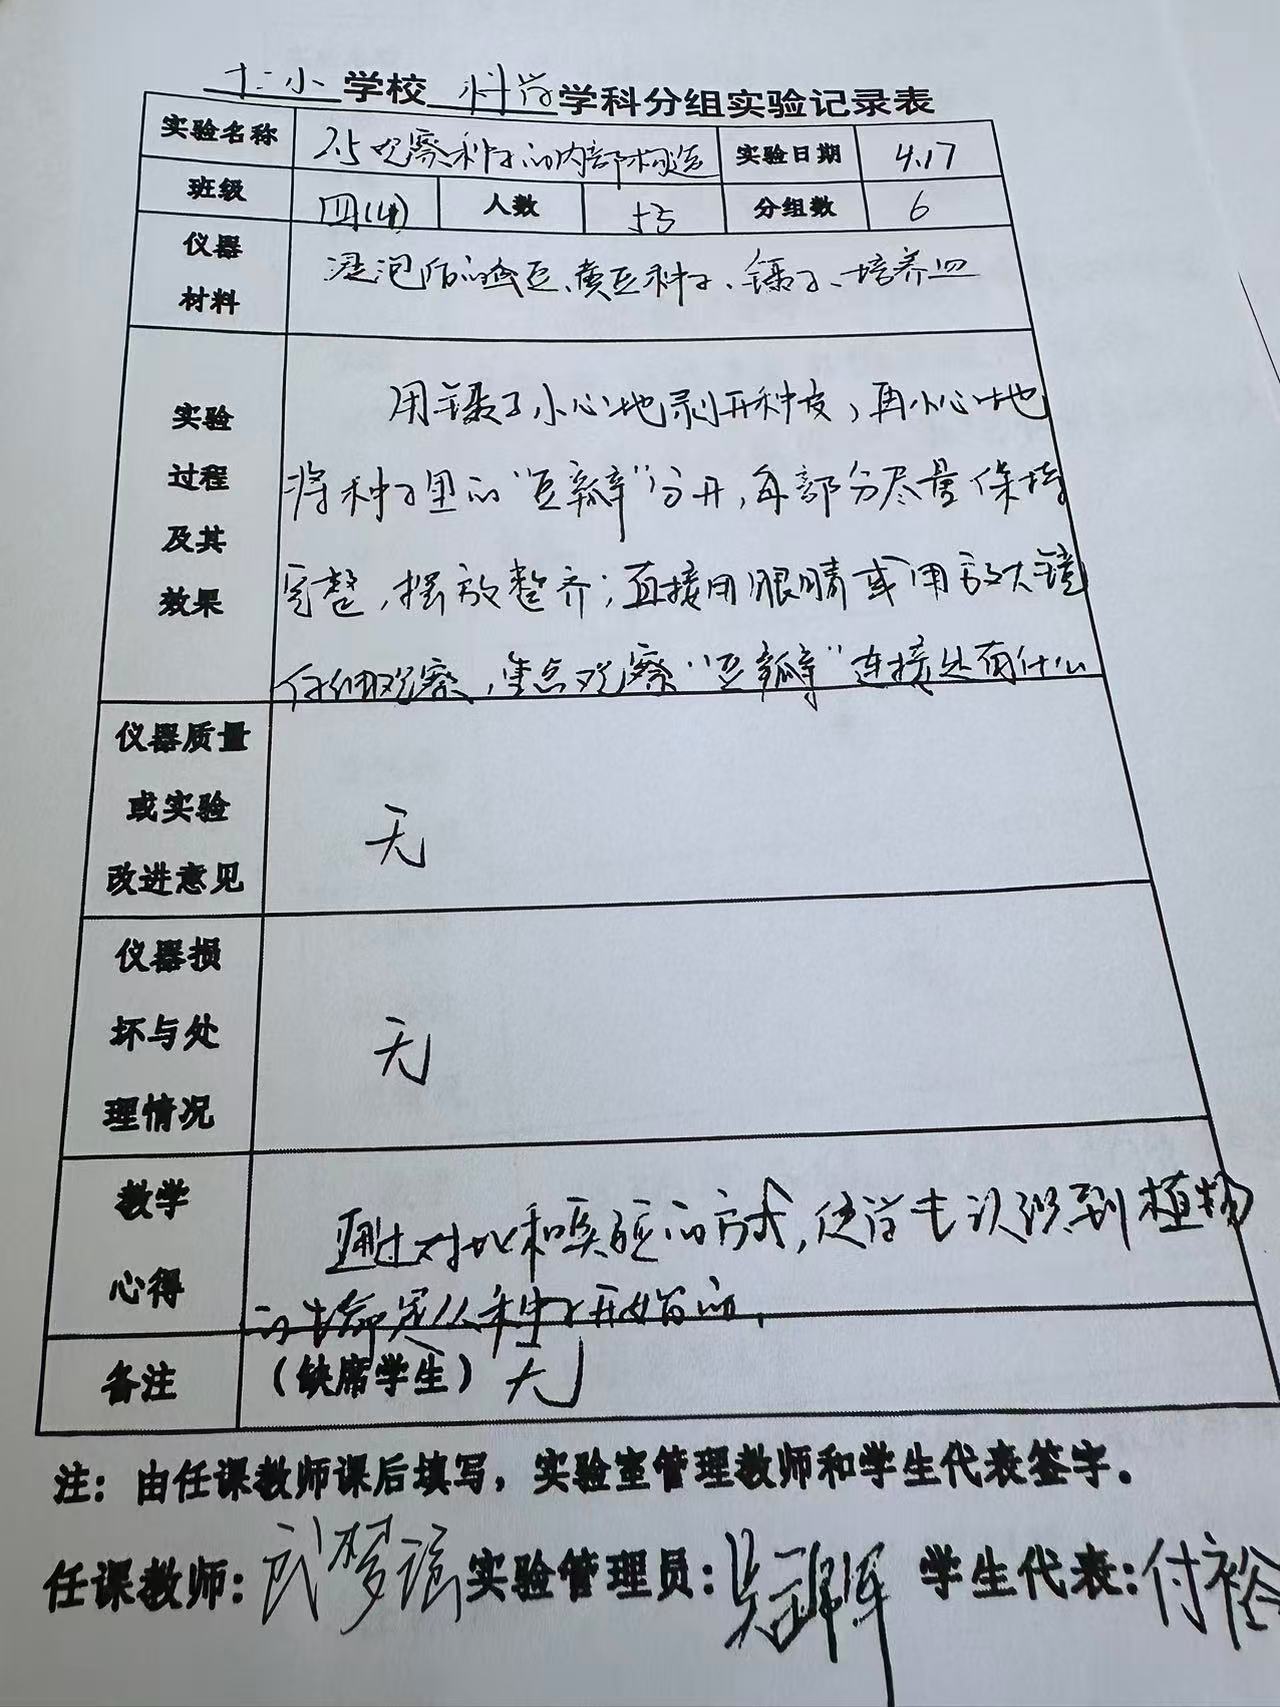 十二小学校 科学学科分组实验记录表
实验名称 2.5观察种子的内部构造 实验日期 4.17
班级 四(4) 人数 53 分组数 6
仪器
材料
浸泡后的蚕豆、黄豆种子、镊子、培养皿
实验
过程
及其
效果
用镊子小心地剥开种皮，再小心地
将种子里的“豆瓣”分开，每部分尽量保持
完整，摆放整齐；直接用眼睛或用放大镜
仔细观察，重点观察“豆瓣”连接处有什么
仪器质量
或实验
改进意见
无
仪器损
坏与处
理情况
无
教学
心得
通过对比和实验的方式，使学生认识到植物
的生命是从种子开始的．
备注 （缺席学生）无
注：由任课教师课后填写，实验室管理教师和学生代表签字。
任课教师：武梦瑶 实验管理员：吴 学生代表：付裕